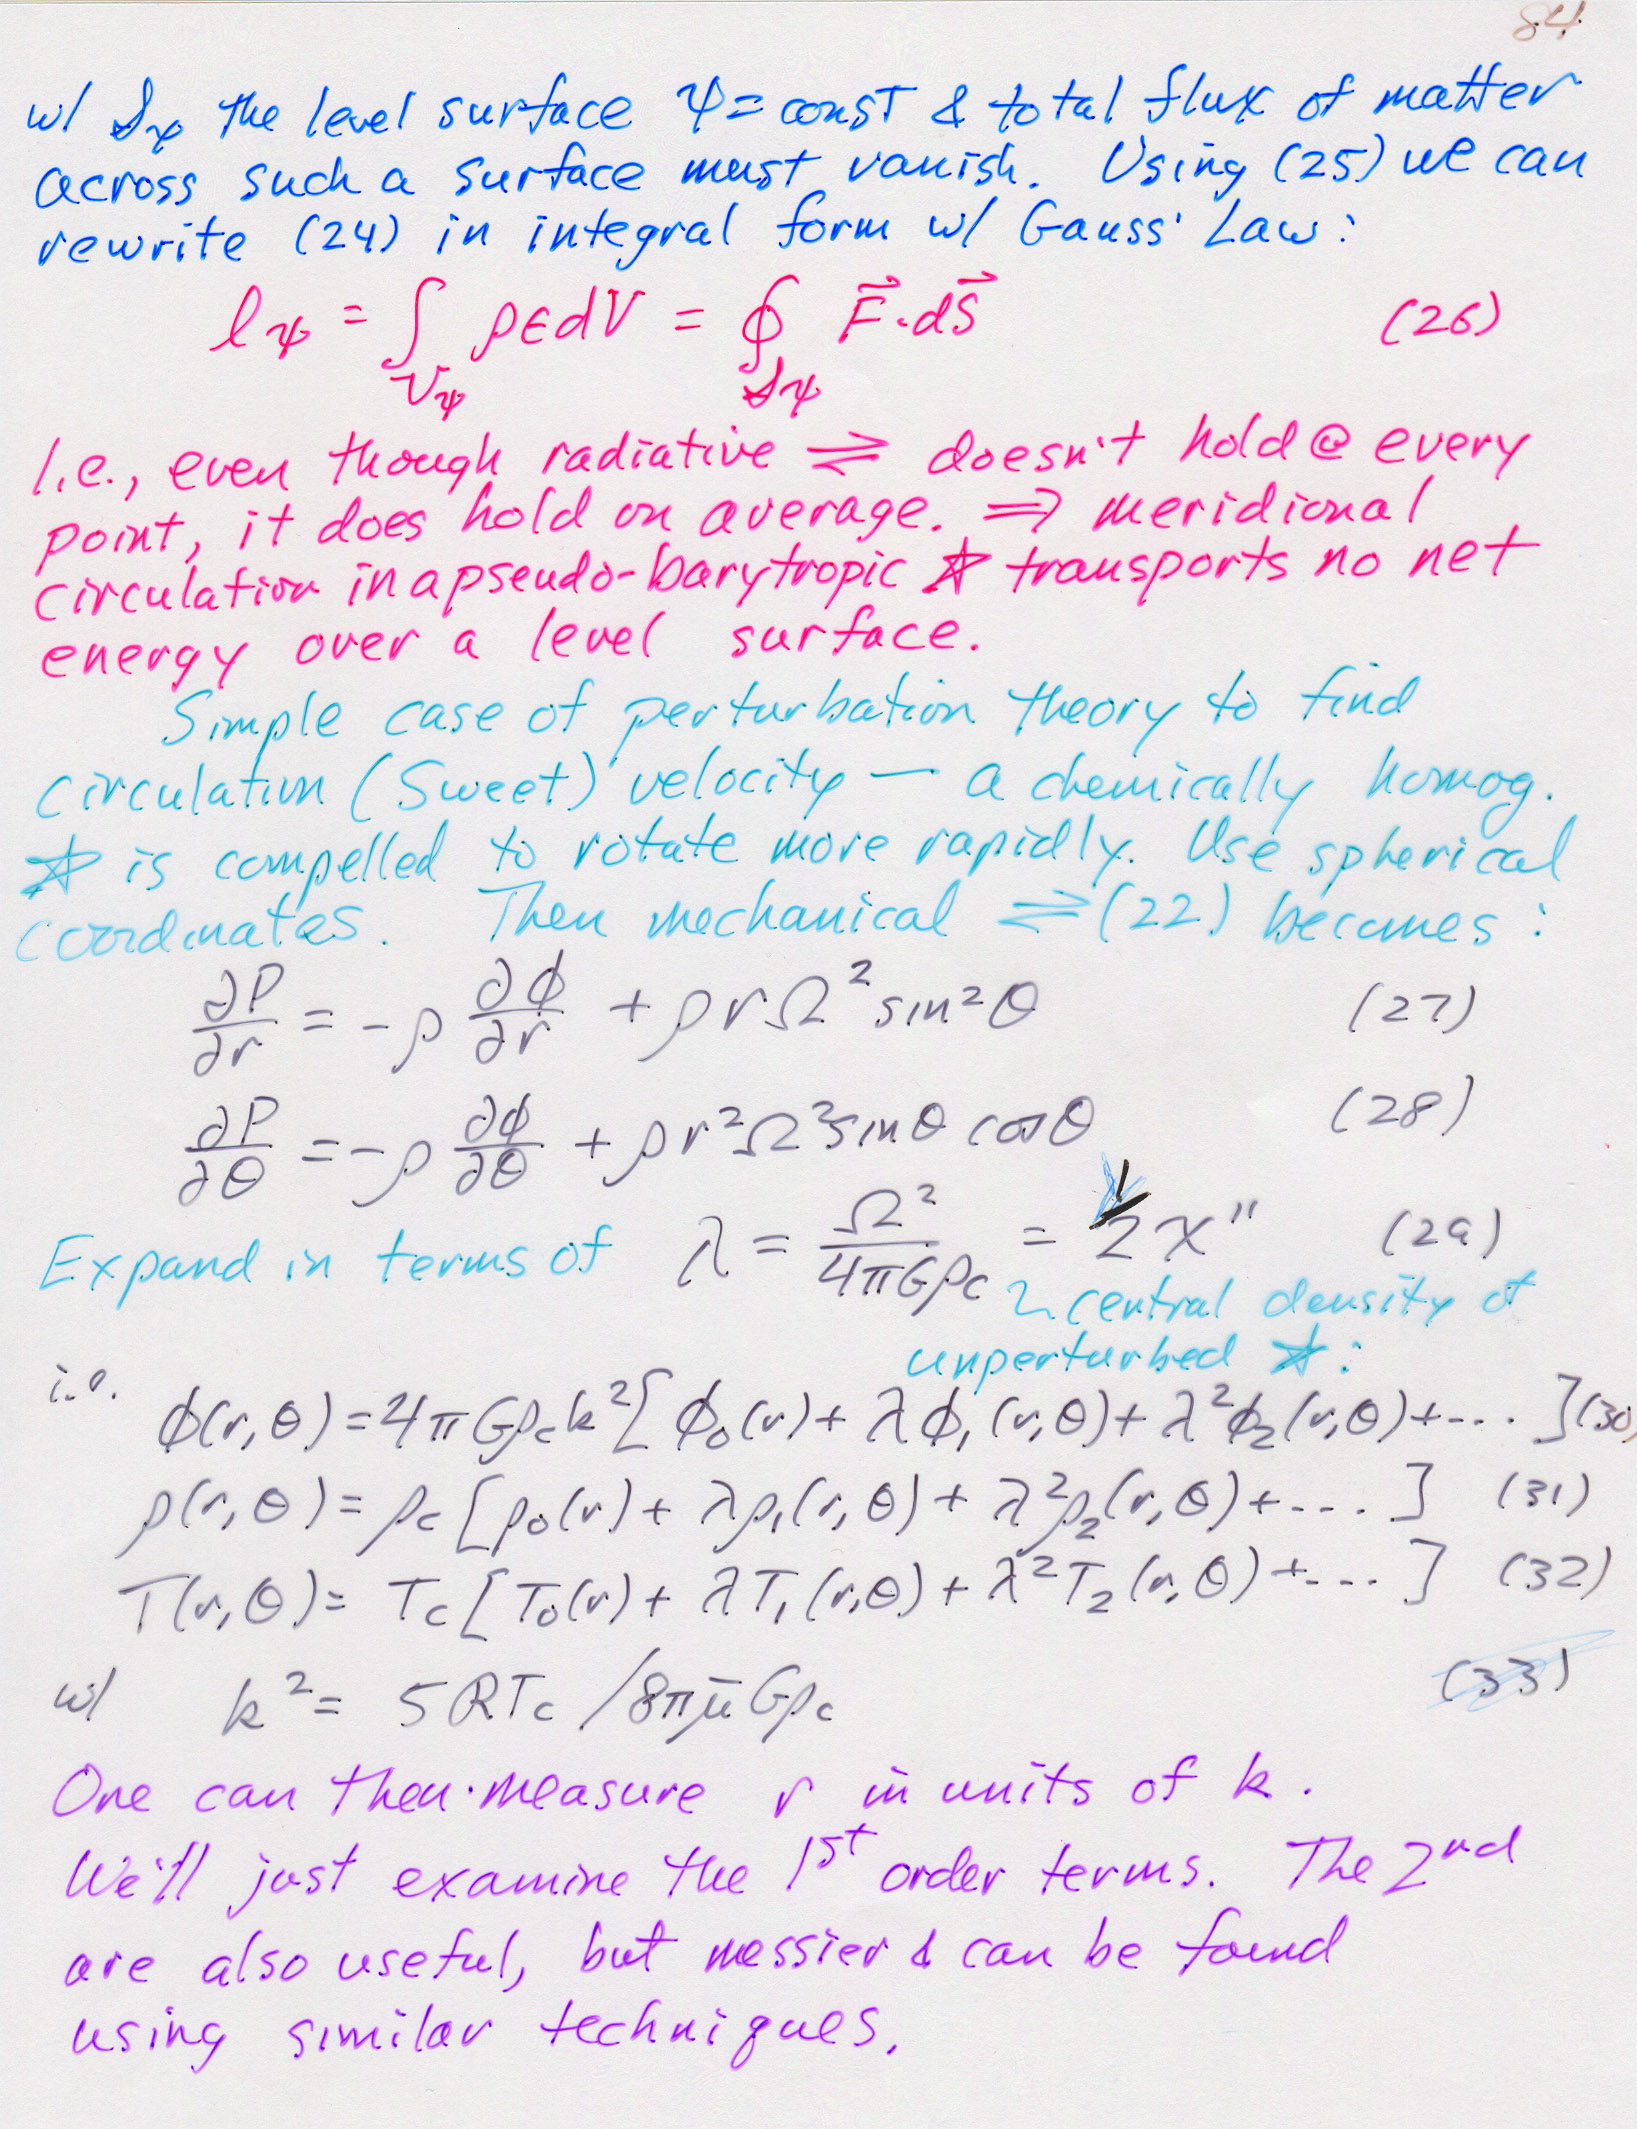 84
w/ 𝒮_ψ the level surface ψ = const & total flux of matter
across such a surface must vanish. Using (25) we can
rewrite (24) in integral form w/ Gauss' Law:
ℓ_ψ = ∫_{V_ψ} ρεdV = ∮_{𝒮_ψ} F⃗·dS⃗ (26)
I.e., even though radiative ⇌ doesn't hold @ every
point, it does hold on average. ⇒ meridional
circulation in a pseudo-barytropic ☆ transports no net
energy over a level surface.
Simple case of perturbation theory to find
circulation (Sweet) velocity — a chemically homog.
☆ is compelled to rotate more rapidly. Use spherical
coordinates. Then mechanical ⇌ (22) becomes:
∂P/∂r = -ρ ∂ϕ/∂r + ρrΩ² sin²θ (27)
∂P/∂θ = -ρ ∂ϕ/∂θ + ρr²Ω² sinθ cosθ (28)
Expand in terms of λ = Ω²/4πGρ_c = 2χ" (29)
central density of
unperturbed ☆:
i.e. ϕ(r,θ) = 4πGρ_c k² [ϕ₀(r) + λϕ₁(r,θ) + λ²ϕ₂(r,θ) + ....] (30)
ρ(r,θ) = ρ_c [ρ₀(r) + λρ₁(r,θ) + λ²ρ₂(r,θ) + ....] (31)
T(r,θ) = T_c [T₀(r) + λT₁(r,θ) + λ²T₂(r,θ) + ....] (32)
w/ k² = 5RT_c /8πμ̄Gρ_c (33)
One can then measure r in units of k.
We'll just examine the 1st order terms. The 2nd
are also useful, but messier & can be found
using similar techniques.